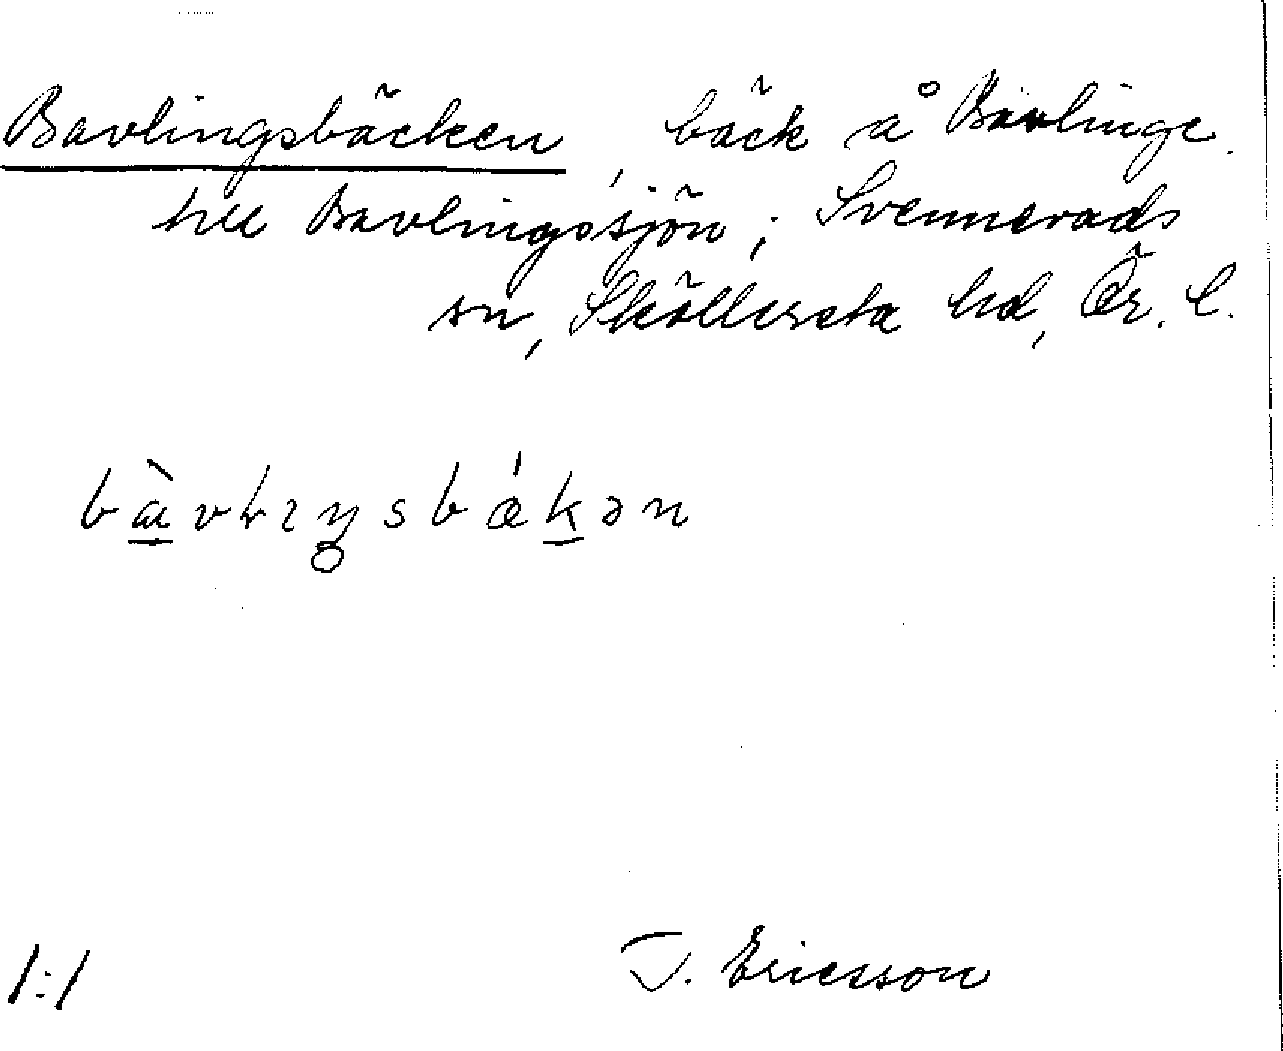 Bavlingsbäcken, bäck å Bavlinge
till Bavlingssjön; Svennevads
sn, Sköllersta hd, Ör. l.
bàvlıŋsbǽkən
1:1
T. Ericsson